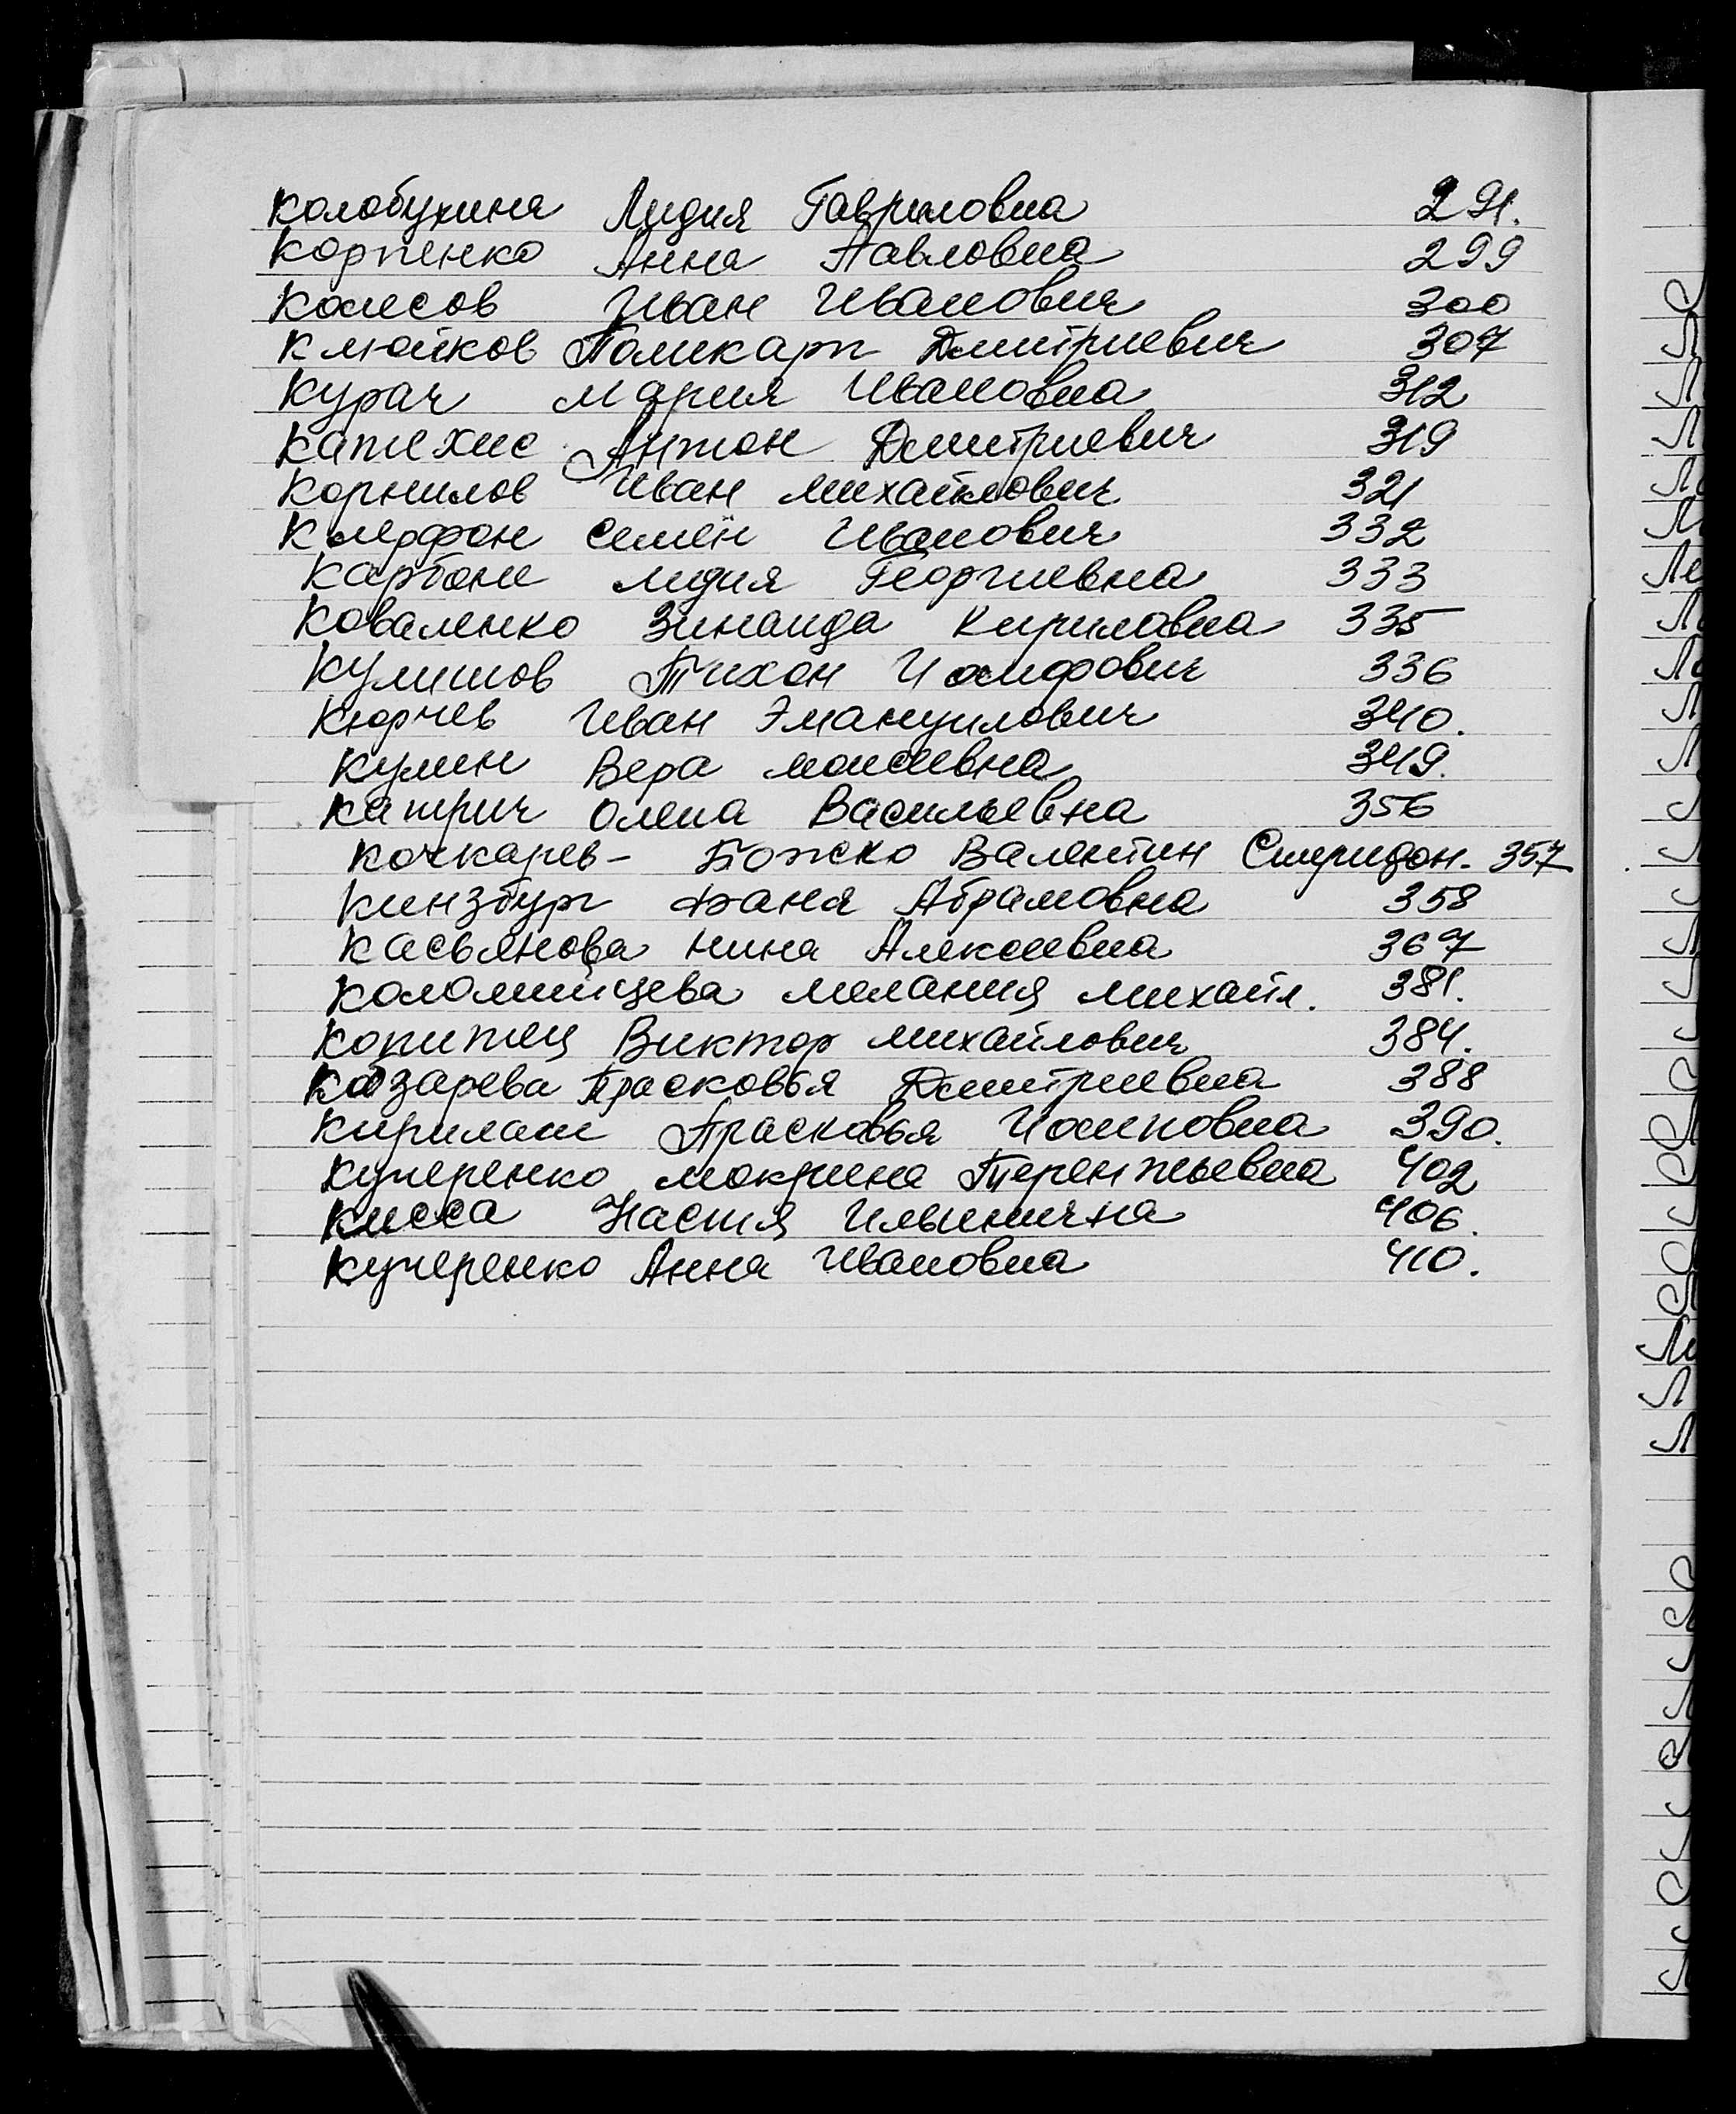 Колобухина Лидия Гавриловна 291.
Корпенко Анна Павловна 299
Колесов Иван Иванович 300
Клюйков Поликарп Дмитриевич 307
Курач Мария Ивановна 312
Катехис Антон Дмитриевич 319
Корнилов Иван Михайлович 321
Клерфон Семён Иванович 332
Карбоне Лидия Георгиевна 333
Коваленко Зинаида Кириловна 335
Кулишов Тихон Иосифович 336
Кюрчев Иван Эмануилович 340.
Кулин Вера Моисеевна 349.
Катрич Олена Васильевна 356
Кочкарев- Божско Валентин Спиридон. 357
Кинзбург Фаня Абрамовна 358
Касьянова Нина Алексеевна 367
Коломийцева Мелания Михайл. 381.
Копитец Виктор Михайлович 384.
Казарева Прасковья Дмитриевна 388
Кирилаш Прасковья Иосиповна 390.
Кучеренко Мокрина Терентьевна 402
Кисса Настя Ильинична 406.
Кучеренко Анна Ивановна 410.